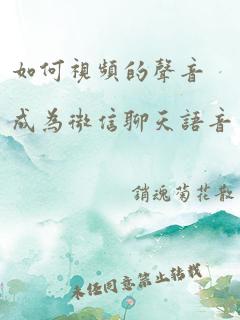 如何視頻的聲音
成為微信聊天語音
銷魂菊花散
未任同意禁止转载